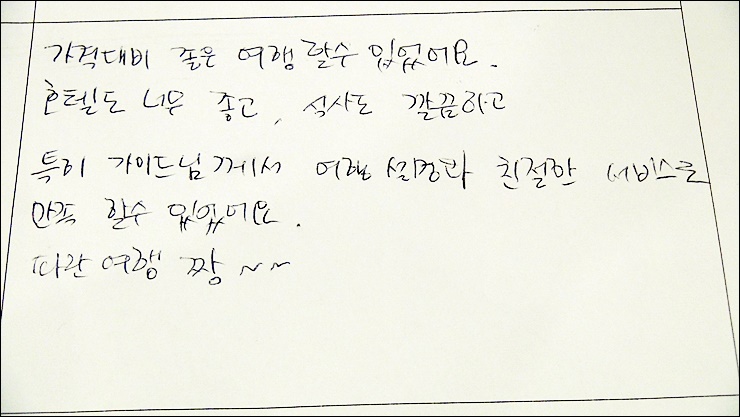 가격대비 좋은 여행 할수 있었어요.
호텔도 너무 좋고, 식사도 깔끔하고
특히 가이드님께서 여행 설명과 친절한 서비스로
만족 할수 있었어요.
따란여행 짱~~